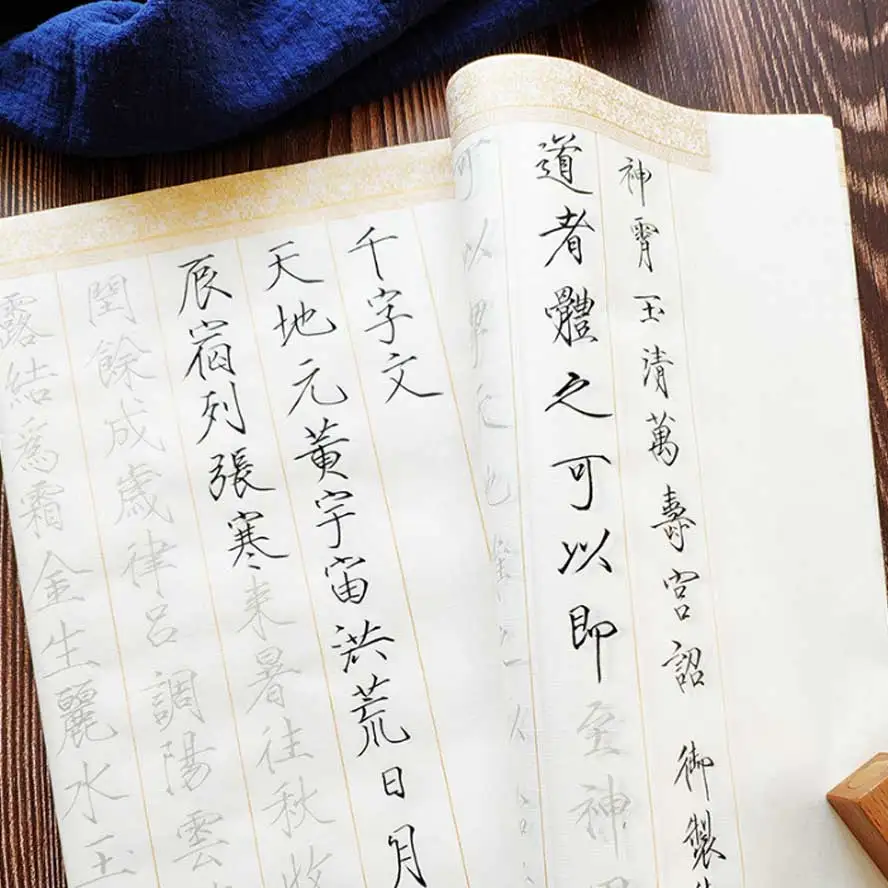 神霄玉清萬壽宮詔 御製
道者體之可以即至神
可以
千字文
天地元黃宇宙洪荒日月
辰宿列張寒来暑往秋收
閏餘成歲律呂調陽雲
露結爲霜金生麗水玉